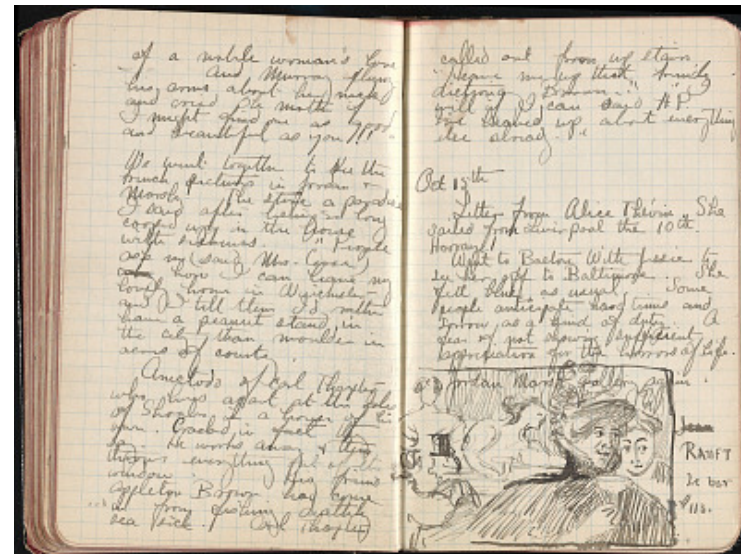 of a noble woman's love
And Murray flung
his arms about her neck
and cried Oh mother if
I might find one as good
and beautiful as you!!!
We went together to see the
French pictures in Jordan &
Marsh. The store a paradise
I said after being so long
cooped up in the house
with sickness. "People
ask me (said Mrs.
how I can leave my
lovely home in
and I tell them I'd rather
have a peanut stand in
the city than moulder in
acres of country
Anecdote of Carl Thaxter
who lives apart at the Isles
of Shoals in a house of his
own. Cracked in fact
He works away & then
throws everything out of the
window. His friend
Appleton Brown had come
in from fishing
sea sick. Carl Thaxter
called out from up stairs
heave me up that
dictionary Brown."
will if I can said A.P.
I've heaved up about everything
else already."
Oct 15th
Letter from Alice Thévin. She
sailed from Liverpool the 10th.
Hooray!
Went to Boston with Jessie to
see her off to Baltimore. She
felt blue, as usual. Some
people anticipate hard times and
sorrow as a kind of duty. A
fear of not showing sufficient
appreciation for the horrors of life.
Jordan Marsh gallery again.
Jean
RAFFT
Le bar